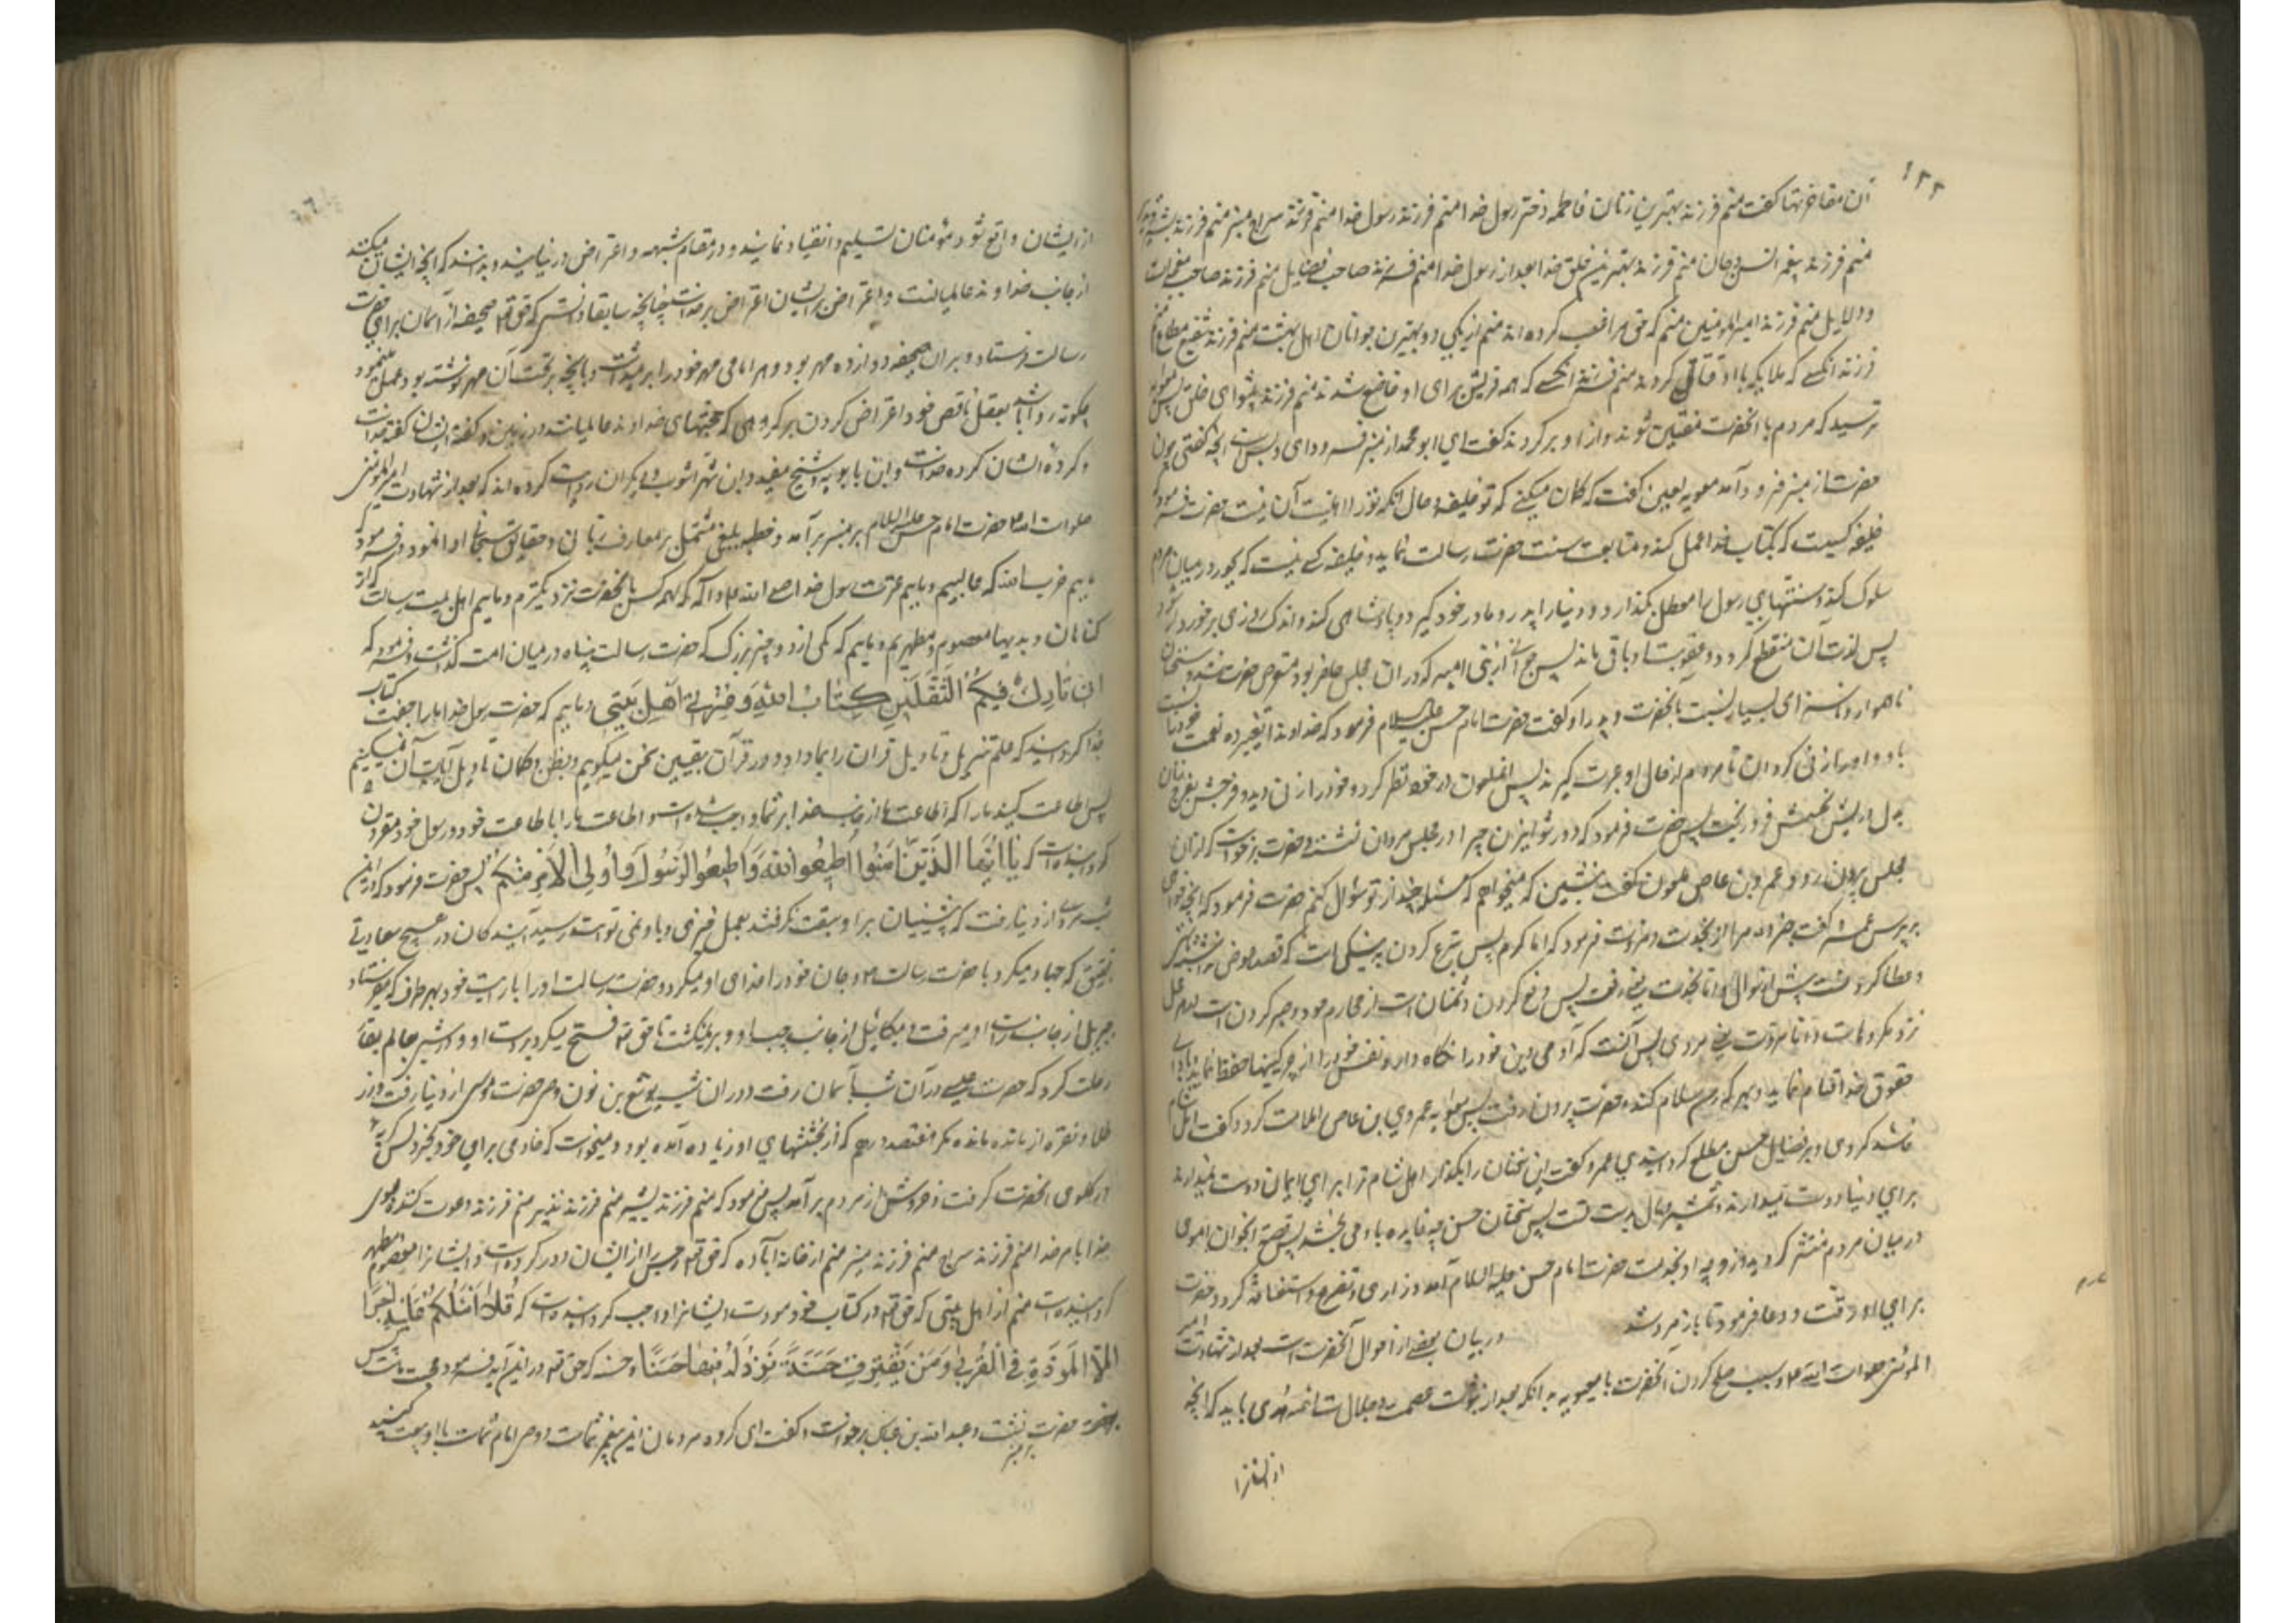 ۱۲۲
آن مفاخرتها گفت منم فرزند بهترین زنان فاطمه دختر رسول خدا منم فرزند رسول خدا منم فرزند سراج منیر منم فرزند بشیر و نذیر
منم فرزند پیغمبر انس و جان منم فرزند بهترین خلق خدا بعد از رسول خدا منم فرزند صاحب فضایل منم فرزند صاحب معجزات
و دلایل منم فرزند امیر المؤمنین منم که حق مرا غصب کرده اند منم از یکی دو بهترین جوانان اهل بهشت منم فرزند شفیع مطاع منم
فرزند آنکسی که ملایکه با او قتال کردند منم فرزند آنکسی که همه قریش برای او خاضع شدند منم فرزند پیشوای خلق پس معویه
ترسید که مردم با آنحضرت مفتین شوند و از او برگردند گفت ای ابو محمد از منبر فرود آی و بس است آنچه گفتی چون
حضرت از منبر فرود آمد معویه لعین گفت که گمان میکنی که تو خلیفه و حال آنکه تورا اهلیت آن نیست حضرت فرمود که
خلیفه کسیست که بکتاب خدا عمل کند و متابعت سنت حضرت رسالت نماید و خلیفه کسی نیست که بجور در میان مردم
سلوک کند و سنتهای رسول را معطل بگذارد و دنیا را پدر و مادر خود گیرد و پادشاهی کند و اندک زمانی برخوردار شود
پس لذت آن منقطع گردد و عقوبت او باقی ماند پس جوانی از بنی امیه که در آن مجلس حاضر بود متوجه حضرت شد و سخنان
ناهموار و ناسزای بسیار نسبت بانحضرت و پدر او گفت حضرت امام حسن علیه السلام فرمود که خداوندا تغییر ده نعمت خود را نسبت
باو و او را زنی گردان تا مردم از حال او عبرت گیرند پس آنملعون در خود نظر کرد و خود را زن دید و فرجش بفرج زنان
بدل و ریش نحسش فرو ریخت پس حضرت فرمود که دور شو ای زن چرا در مجلس مردان نشسته و حضرت برخواست که از آن
مجلس بیرون رود عمرو بن عاص ملعون گفت بنشین که میخواهم که مسئله چند از تو سؤال کنم حضرت فرمود که آنچه خواهی
بپرس عمرو گفت خبر ده مرا از نجدت و مروت فرمود که اما کرم پس تبرع کردن به نیکی است
و عطا کردنست پیش از سؤال و اما نجدت یعنی رفعت پس دفع کردن دشمنان است از محارم خود و صبر کردن است در محل
نزد مکروهات و اما مروت یعنی مردی پس آنست که آدمی دین خود را نگاه دارد و نفس خود را از چرکینها حفظ نماید و بادای
حقوق خدا قیام نماید و بهر که رسد سلام کند و حضرت بیرون رفت پس معویه عمرو بن عاص را ملامت کرد و گفت اهل شام را
فاسد کردی و بر فضایل حسن مطلع گردانیدی عمرو گفت این سخنان را بگذار اهل شام ترا برای ایمان دوست نمیدارند
برای دنیا دوست میدارند و شمشیر و مال بدست تست پس سخنان حسن چه فایده باو می بخشد پس قصه آنجوان اموی
در میان مردم منتشر گردید و زوجه او بخدمت حضرت امام حسن علیه السلام آمد و زاری و تضرع و استغاثه کرد و حضرت
برای او رقت و دعا فرمود تا باز مرد شد در بیان بعضی از احوال آنحضرت است بعد از شهادت امیر
المؤمنین صلوات الله علیه و سبب صلح کردن آنحضرت با معویه بدانکه بعد از ثبوت عصمت و جلالت ائمه هدی باید که آنچه
از ایشان
از ایشان واقع شود مؤمنان تسلیم و انقیاد نمایند و در مقام شبهه و اعتراض در نیایند و بدانند که آنچه ایشان میکنند
از جانب خداوند عالمیانست و اعتراض بر ایشان اعتراض بر خداست چنانچه سابقا دانستی که حق تعالی صحیفه از آسمان برای حضرت
رسالت فرستاد و بر آن صحیفه دوازده مهر بود و هر امامی مهر خود را بر میداشت و بآنچه در تحت آن مهر نوشته بود عمل مینمود
چگونه روا باشد بعقل ناقص خود اعتراض کردن بر گروهی که حجتهای خداوند عالمیانند در زمین و گفته ایشان گفته خداست
و کرده ایشان کرده خداست و ابن بابویه و شیخ مفید و ابن شهر آشوب و دیگران روایت کرده اند که بعد از شهادت امیر المؤمنین
صلوات الله علیه حضرت امام حسن علیه السلام بر منبر برآمد و خطبه بلیغی مشتمل بر معارف ربانی و حقایق سبحانی ادا نمود و فرمود
ماییم حزب الله که غالبیم و ماییم عترت رسول خدا صلی الله علیه و آله که از همه کس بآنحضرت نزدیکتریم و ماییم اهل بیت رسالت که از
گناهان و بدیها معصوم و مطهریم و ماییم که یکی از دو چیز بزرگ که حضرت رسالت پناه در میان امت گذاشت و فرمود که
انی تارک فیکم الثقلین کتاب الله و عترتی اهل بیتی و ماییم که حضرت رسول خدا ما را جفت کتاب
خدا گردانید که علم تنزیل و تاویل قران را بما داد و در قرآن بیقین سخن میگوییم و بظن و گمان تاویل آیات آن نمیکنیم
پس اطاعت کنید ما را که اطاعت ما از جانب خدا بر شما واجب شده است و اطاعت ما را با طاعت خود و رسول خود مقرون
گردانیده است که یا ایها الذین آمنوا اطیعوا الله و اطیعوا الرسول و اولی الامر منکم پس حضرت فرمود که در این
شب مردی از دنیا رفت که پیشینیان بر او سبقت نگرفتند بعمل خیری و باو نمی توانند رسید آیندگان در هیچ سعادتی
بتحقیق که جهاد میکرد با حضرت رسالت و جان خود را فدای او میکرد و حضرت رسالت او را با رایت خود بهر طرف که میفرستاد
جبریل از جانب راست او میرفت و میکائیل از جانب چپ او و بر نمیگشت تا حق تعالی فتح میکرد بر دست او و در شبی بعالم بقا
رحلت کرد که حضرت عیسی در آن شب بآسمان رفت و در ان شب یوشع بن نون وصی حضرت موسی از دنیا رفت و از زر
طلا و نقره از او نمانده مگر هفتصد درهم که از بخششهای او زیاده آمده بود و میخواست که خادمی برای خود بخرد پس گریه
در گلوی آنحضرت گرفت و خروش از مردم برآمد پس فرمود که منم فرزند بشیر منم فرزند نذیر منم فرزند دعوت کننده بسوی
خدا بامر خدا منم فرزند سراج منیر منم از خانه آباده که حق تعالی رجس را از ایشان دور کرده است و ایشانرا معصوم و مطهر
گردانیده است منم از اهل بیتی که حق تعالی در کتاب خود مودت ایشانرا واجب گردانیده است که قل لا اسئلکم علیه اجرا
الا المودة فی القربی و من یقترف حسنة نزد له فیها حسنا و حسنه که حق تعالی در این آیه فرموده محبت ماست پس
حضرت بر منبر نشست و عبد الله بن عباس برخواست و گفت ای گروه مردمان این پسر پیغمبر شماست و وصی امام شماست با او بیعت کنید